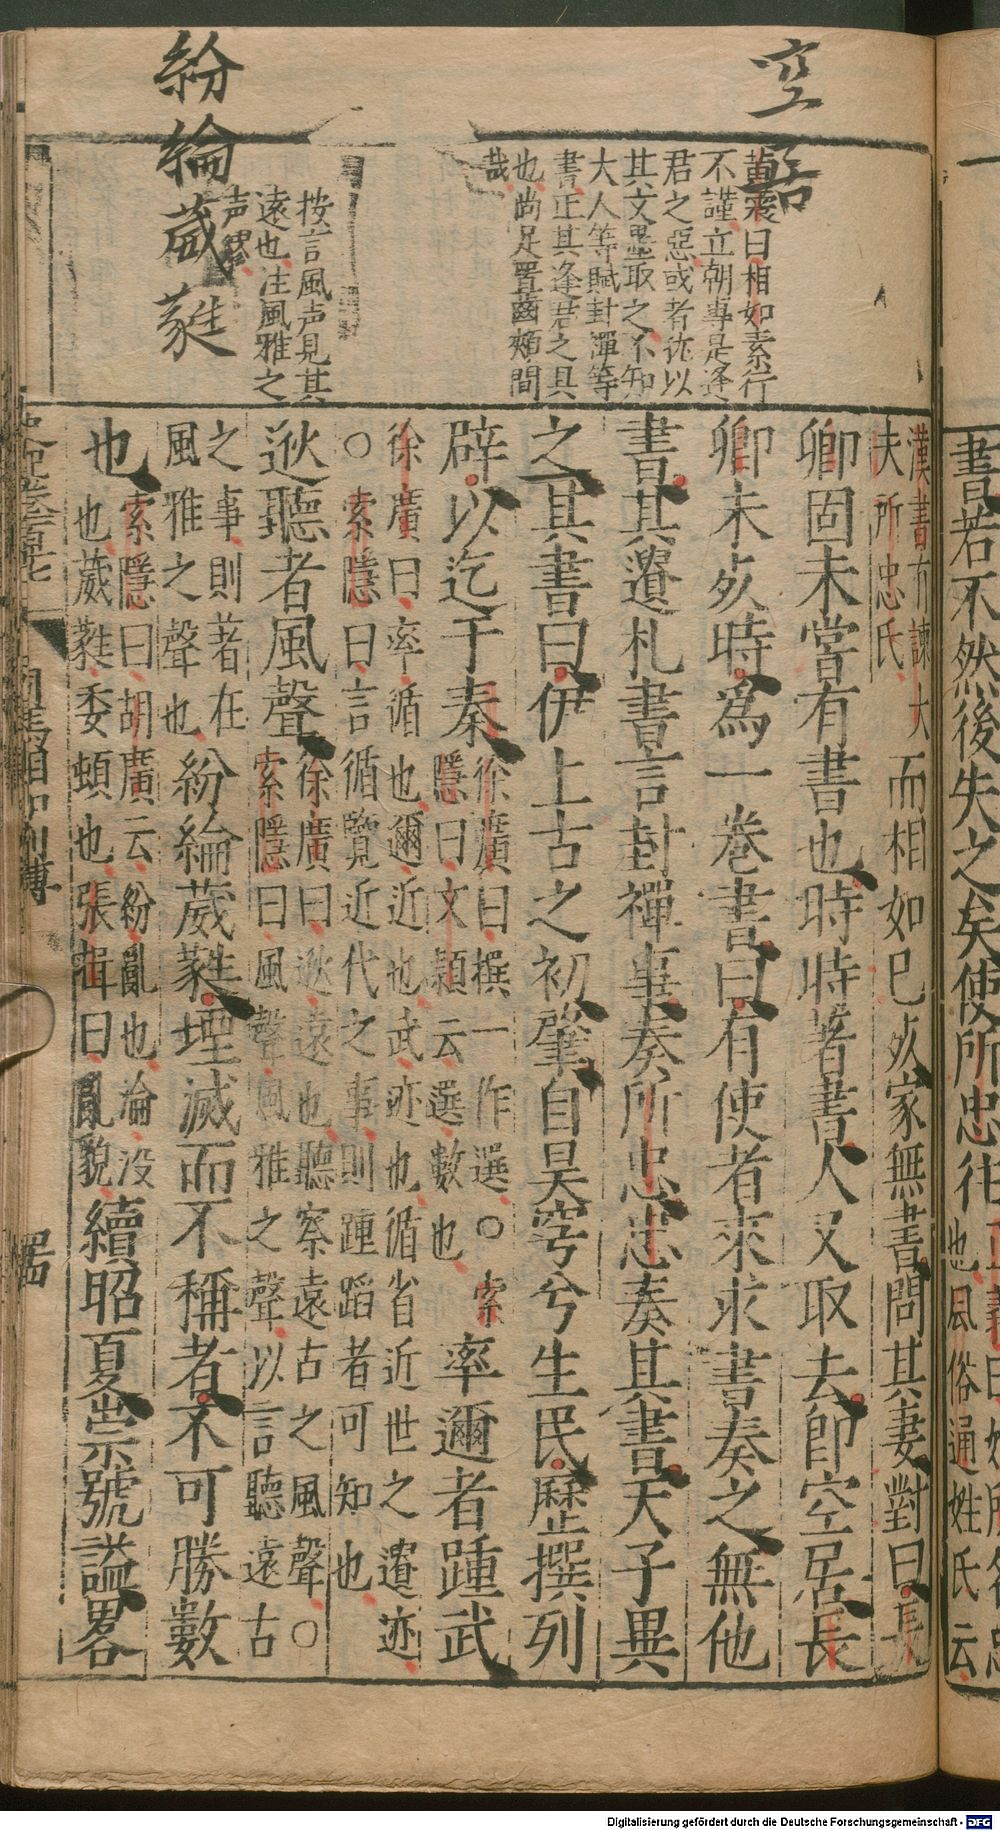 一
書若不然後失之矣使所忠往
正義曰姓所名忠
也風俗通姓氏云
空居
黃震曰相如素行
不謹立朝專是逢
君之惡或者徒以
其文墨取之不知
大人等賦封禪等
書正其逢君之具
也尚足置齒頰間
哉
按言風声見其
遠也注風雅之
声繆
紛綸葳蕤
漢書有諫大
夫所忠氏
而相如已死家無書問其妻對曰長
卿固未嘗有書也時時著書人又取去卽空居長
卿未死時爲一卷書曰有使者來求書奏之無他
書其遺札書言封禪事奏所忠忠奏其書天子異
之其書曰伊上古之初肇自昊穹兮生民歷撰列
辟以迄于秦
徐廣曰撰一作選○索
隱曰文穎云選數也
率邇者踵武
徐廣曰率循也邇近也武迹也循省近世之遺迹
○索隱曰言循覽近代之事則踵蹈者可知也
逖聽者風聲
徐廣曰逖遠也聽察遠古之風聲○
索隱曰風聲風雅之聲以言聽遠古
之事則著在
風雅之聲也
紛綸葳蕤堙滅而不稱者不可勝數
也
索隱曰胡廣云紛亂也淪没
也葳蕤委頓也張揖曰亂貌
續昭夏崇號謚畧
司馬相如列傳
Digitalisierung gefördert durch die Deutsche Forschungsgemeinschaft - DFG